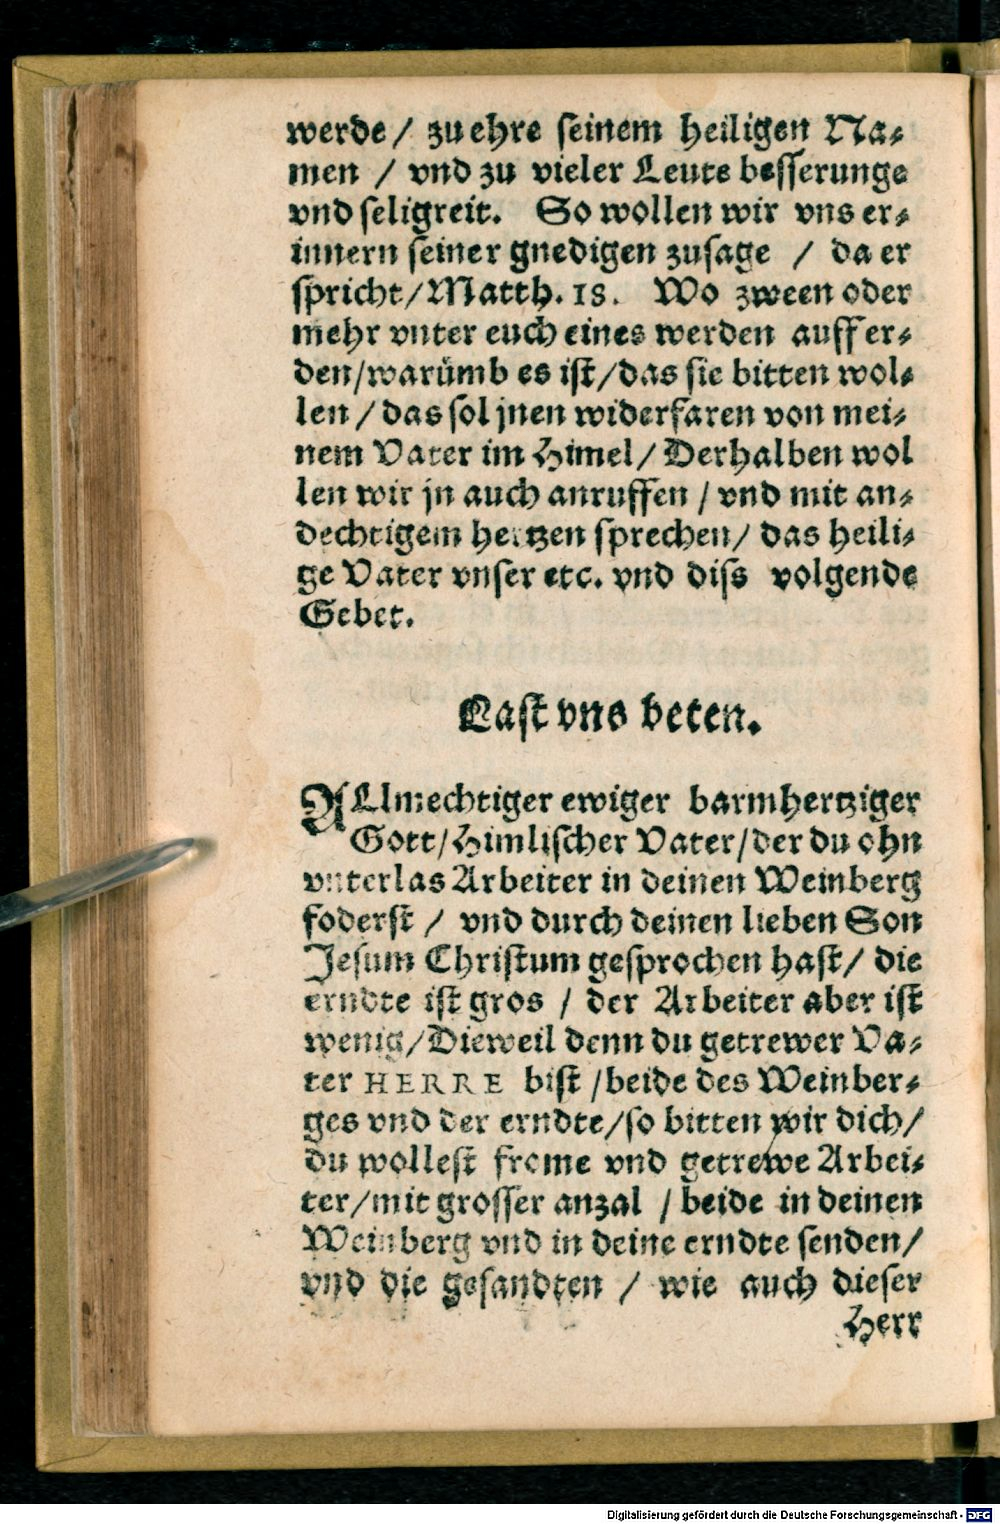 werde / zu ehre seinem heiligen Na⸗
men / vnd zu vieler Leute besserunge
vnd seligreit. So wollen wir vns er⸗
innern seiner gnedigen zusage / da er
spricht / Matth. 18. Wo zween oder
mehr vnter euch eines werden auff er⸗
den / warümb es ist / das sie bitten wol⸗
len / das sol jnen widerfaren von mei⸗
nem Vater im Himel / Derhalben wol
len wir jn auch anruffen / vnd mit an⸗
dechtigem hertzen sprechen / das heili⸗
ge Vater vnser etc. vnd diss volgende
Gebet.
Last vns beten.
ALlmechtiger ewiger barmhertziger
Gott / Himlischer Vater / der du ohn
vnterlas Arbeiter in deinen Weinberg
foderst / vnd durch deinen lieben Son
Jesum Christum gesprochen hast / die
erndte ist gros / der Arbeiter aber ist
wenig / Dieweil denn du getrewer Va⸗
ter HERRE bist / beide des Weinber⸗
ges vnd der erndte / so bitten wir dich /
du wollest frome vnd getrewe Arbei⸗
ter / mit grosser anzal / beide in deinen
Weinberg vnd in deine erndte senden /
vnd die gesandten / wie auch dieser
Herr
Digitalisierung gefördert durch die Deutsche Forschungsgemeinschaft - DFG